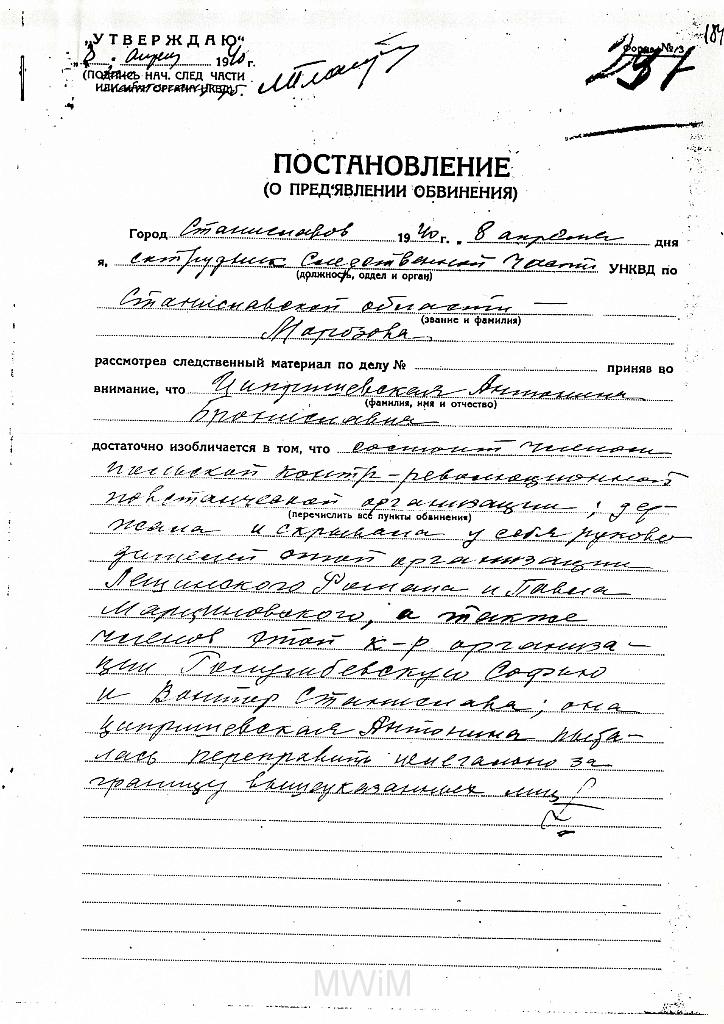 „УТВЕРЖДАЮ“
„8“ апреля 1940 г.
(ПОДПИСЬ НАЧ. СЛЕД ЧАСТИ
Форма №/3
184
ПОСТАНОВЛЕНИЕ
(О ПРЕД'ЯВЛЕНИИ ОБВИНЕНИЯ)
Город Станиславов 1940 г. „ 8 апреля дня
я, сотрудник Следственной Части УНКВД по
(должность, отдел и орган)
Станиславской области —
(звание и фамилия)
Морозова
рассмотрев следственный материал по делу № приняв во
внимание, что Ципришевская Антонина
(фамилия, имя и отчество)
Брониславна
достаточно изобличается в том, что состоит членом
польской контр-революционной
повстанческой организации; дер-
(перечислить все пункты обвинения)
жала и скрывала у себя руково
дителей этой организации
Лещинского Романа и Павла
Марциновского, а также
членов этой к-р организа-
ции Голумбевскую Софью
и Войтер Станислава; она
Ципришевская Антонина пыта-
лась переправить нелегально за
границу вышеуказанных лиц
MWiM